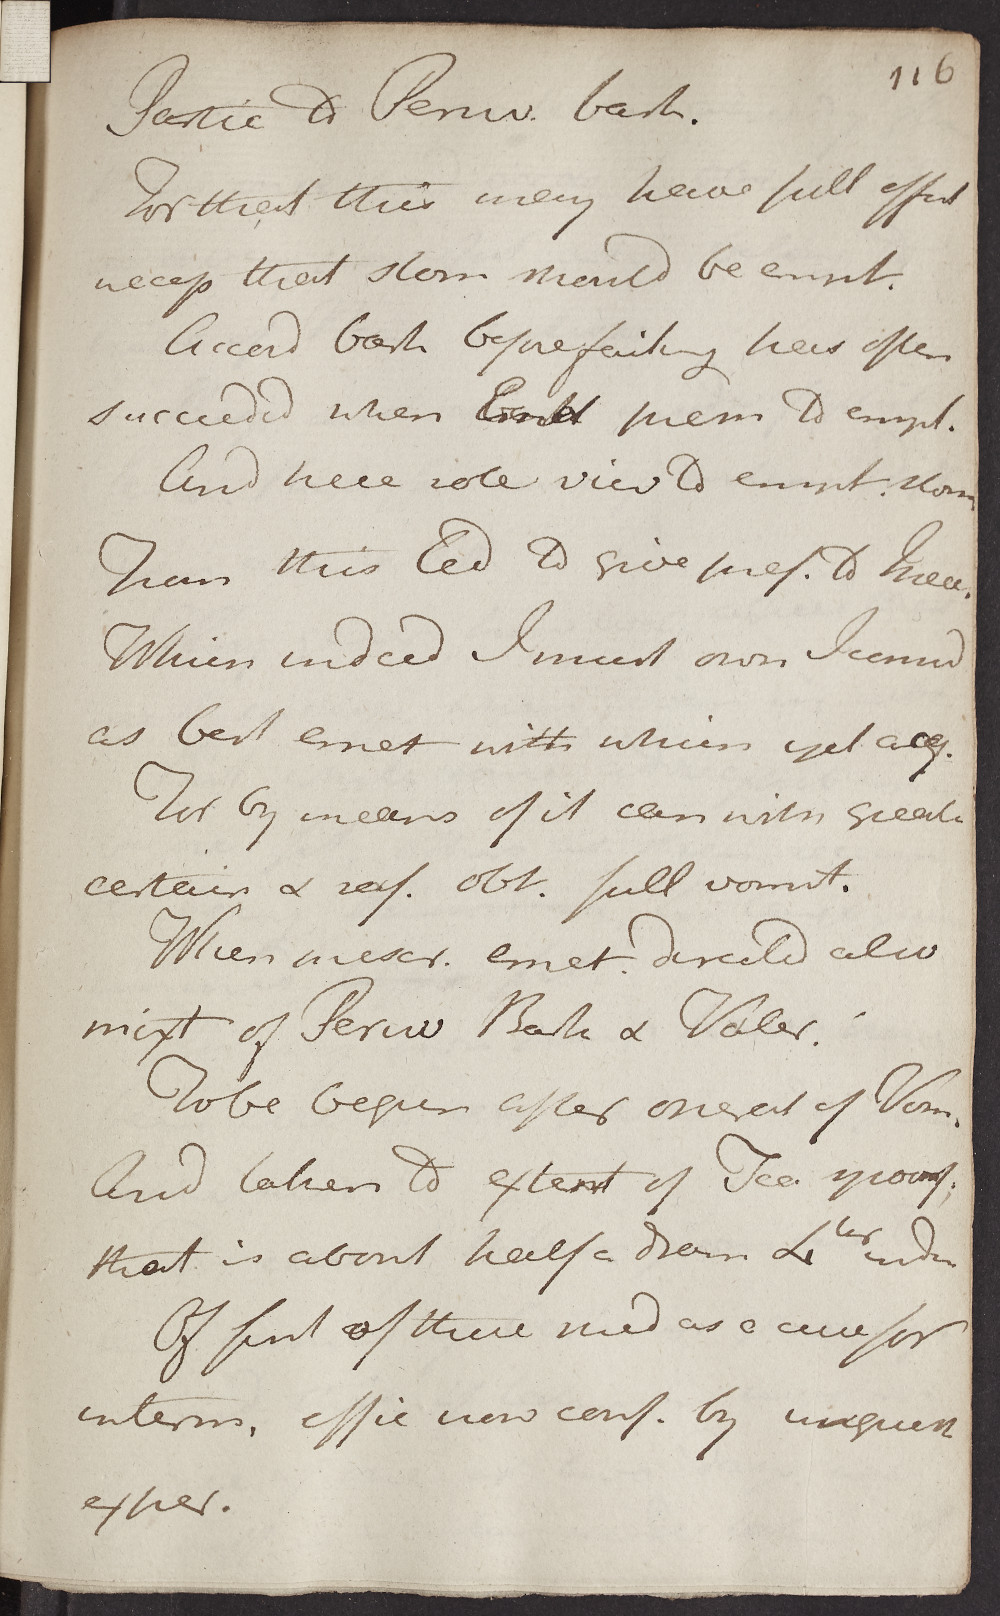 116
Partic to Peruv. bark.
For that this may have full effect
necess that stom should be empt.
Accord bark before failing has often
succeeded when prem to empt.
And here sole view to empt. stom
From this led to give pref. to Ipeca.
Which indeed I must own I consid
as best emet with which yet acq.
For by means of it can with great
certain & saf. obt. full vomit.
When prescr. emet. directed also
mixt of Peruv Bark & Valer.
To be begun after operat of Vom.
And taken to extent of Tea spoonf;
that is about half a dram
Of first of these med as a cure for
interm, effic now conf. by unquest
exper.